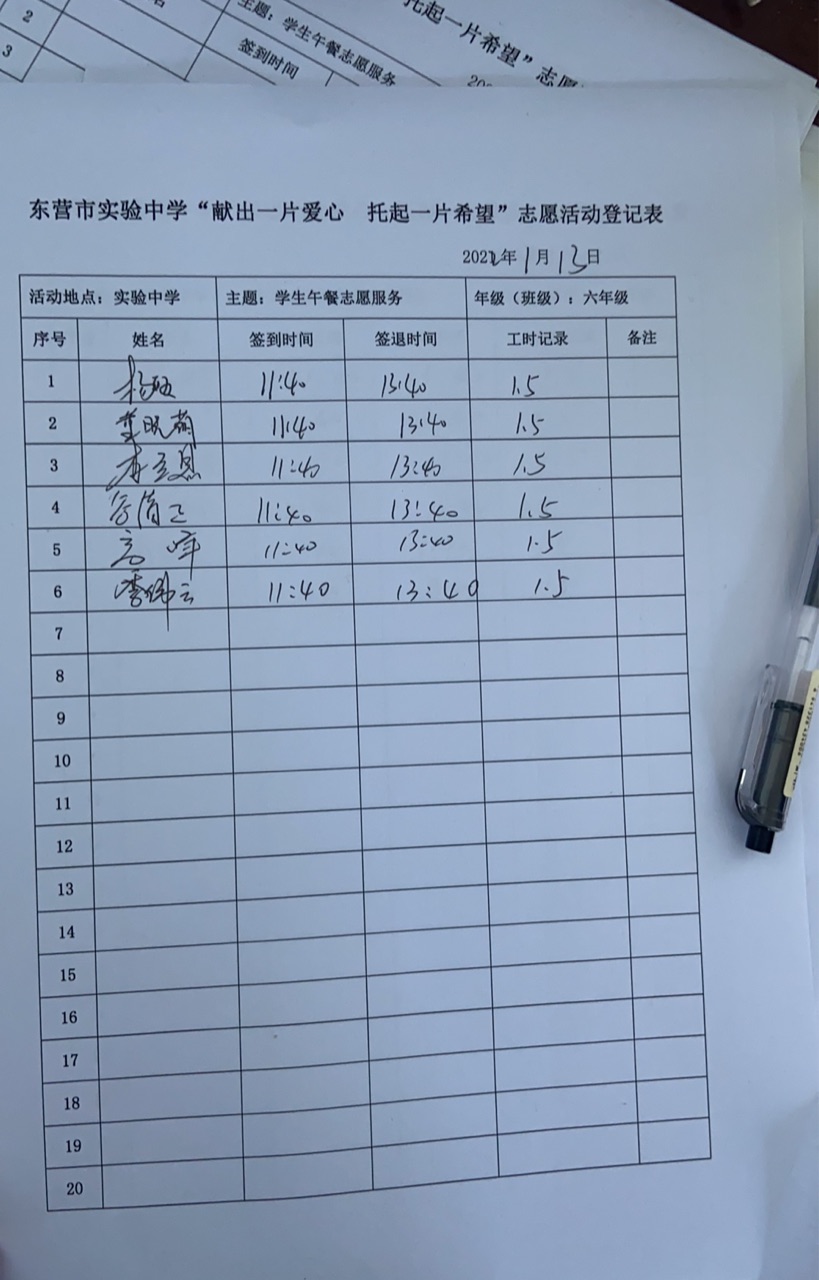 2
3
主题：学生午餐志愿服务
签到时间
托起一片希望”志愿
东营市实验中学“献出一片爱心 托起一片希望”志愿活动登记表
2022年1月13日
活动地点：实验中学 主题：学生午餐志愿服务 年级（班级）：六年级
序号 姓名 签到时间 签退时间 工时记录 备注
1 11:40 13:40 1.5
2 11:40 13:40 1.5
3 11:40 13:40 1.5
4 11:40 13:40 1.5
5 高峰 11:40 13:40 1.5
6 11:40 13:40 1.5
7
8
9
10
11
12
13
14
15
16
17
18
19
20